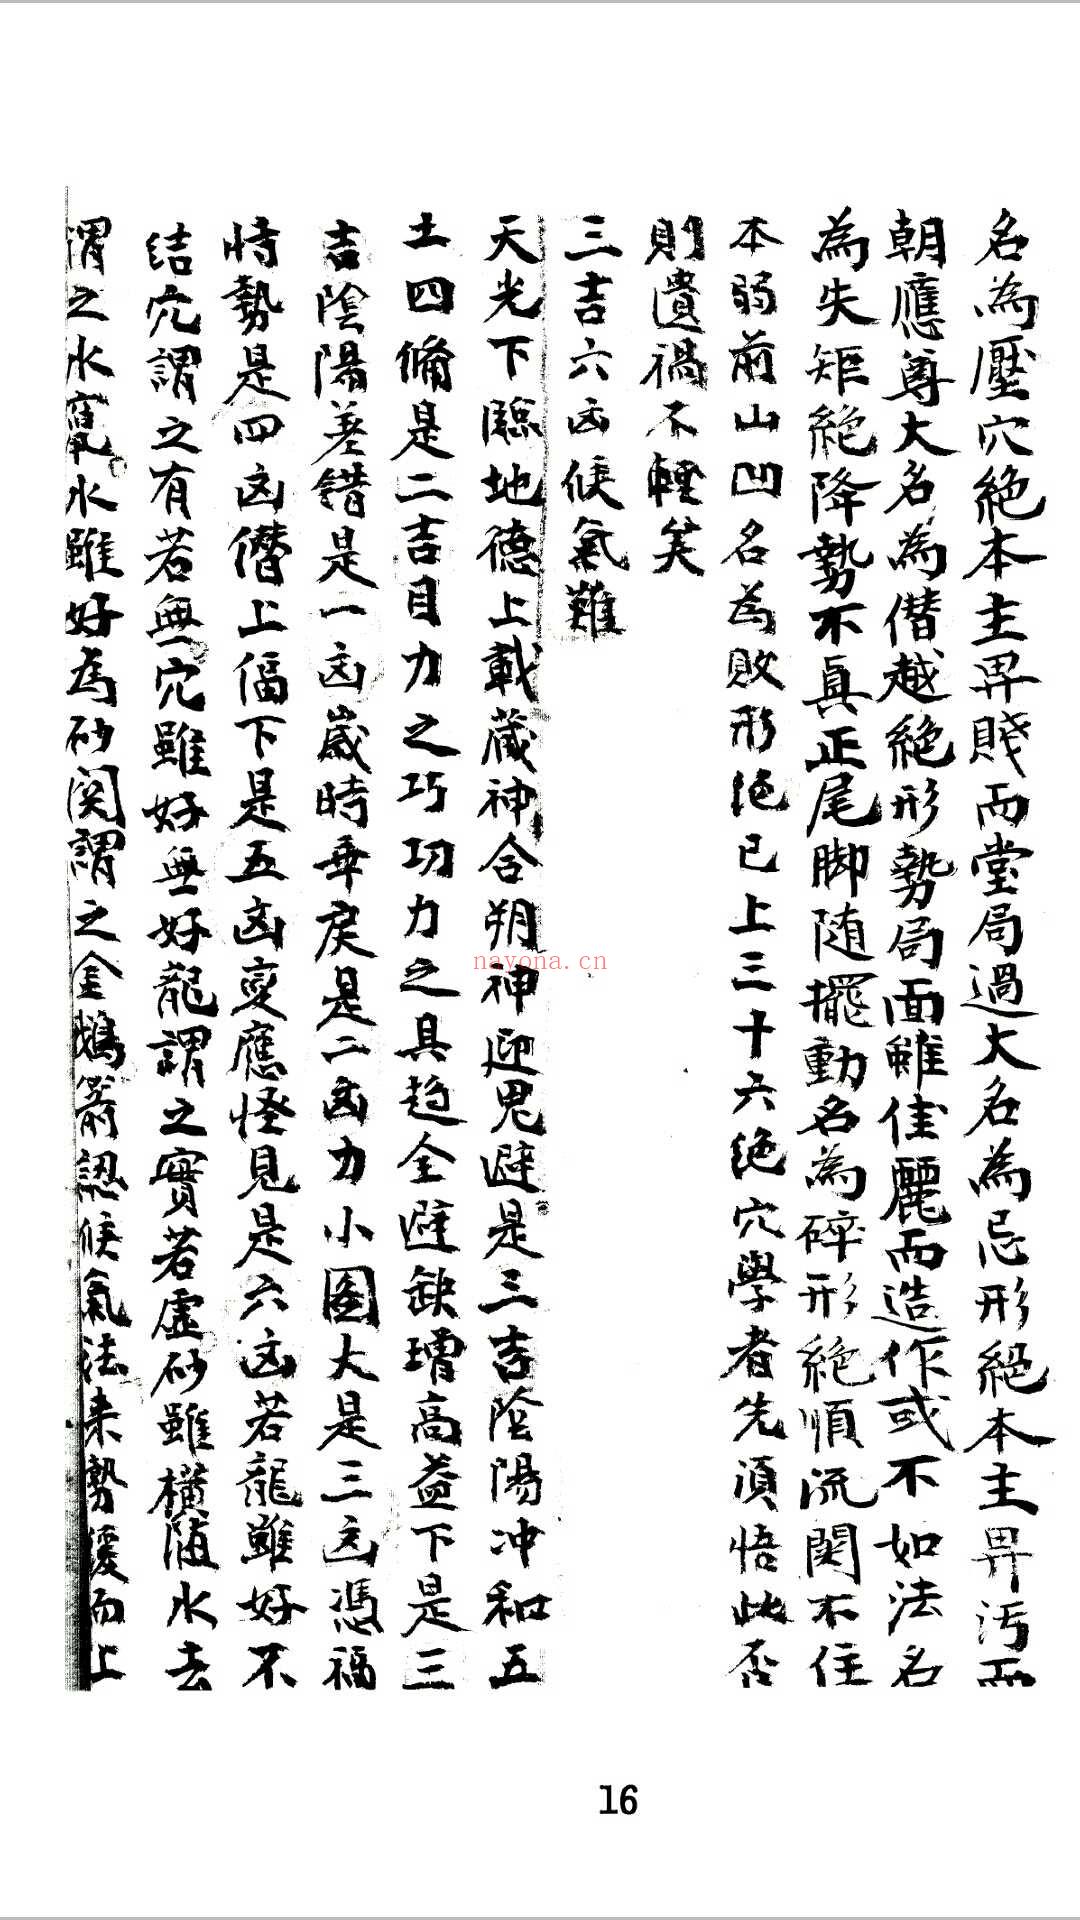 名為壓穴絕本主畀賤而堂局過大名為忌形絕本主畀污而
朝應尊大名為僭越絕形勢局面雖佳麗而造作或不如法名
為失矩絕降勢不真正尾脚随擺動名為碎形絕順流関不住
本弱前山凹名為敗形绝已上三十六绝穴學者先須悟此否
則遺禍不輕矣
三吉六凶候氣難
天光下臨地德上載蔵神合朔神迎鬼避是三吉陰陽冲和五
土四俻是二吉目力之巧功力之具趋全避缺增高益下是三
吉陰陽差錯是一凶歲時乖戾是二凶力小图大是三凶憑福
恃勢是四凶僭上偪下是五凶变應怪見是六凶若龍雖好不
结穴謂之有若無穴雖好無好龍謂之實若虚砂雖橫随水去
謂之水水雖好為砂関謂之金鵝箭認候氣法来勢缓而上
16
nayona.cn